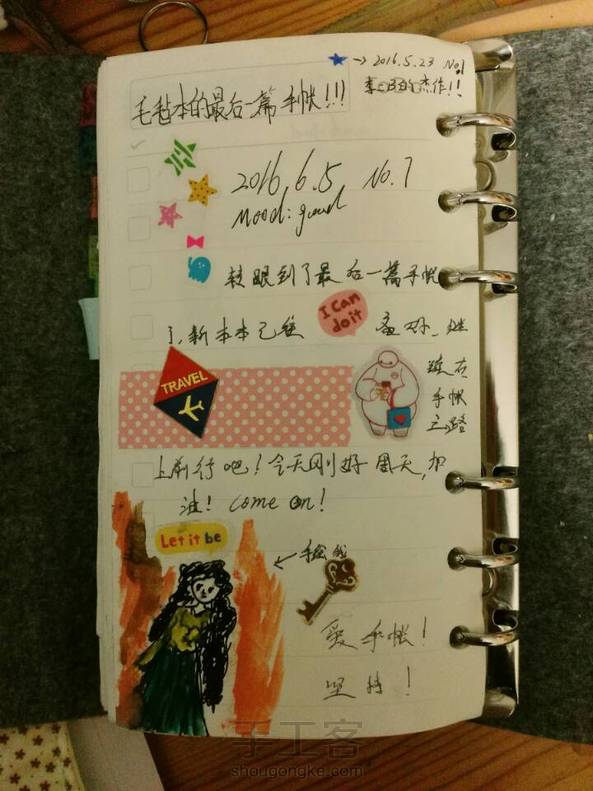 → 2016.5.23 No.1
的杰作!!
毛毡本的最后一篇手帐!!!
2016.6.5 No.7
Mood: good
转眼到了最后一篇手帐
I Can
do it
了,新本本已经 备好,继
续在
手帐
之路
TRAVEL
上前行吧!今天刚好周天,加
油! come on!
Let it be
←手绘我
爱手帐!
坚持!
手工客
shougongke.com